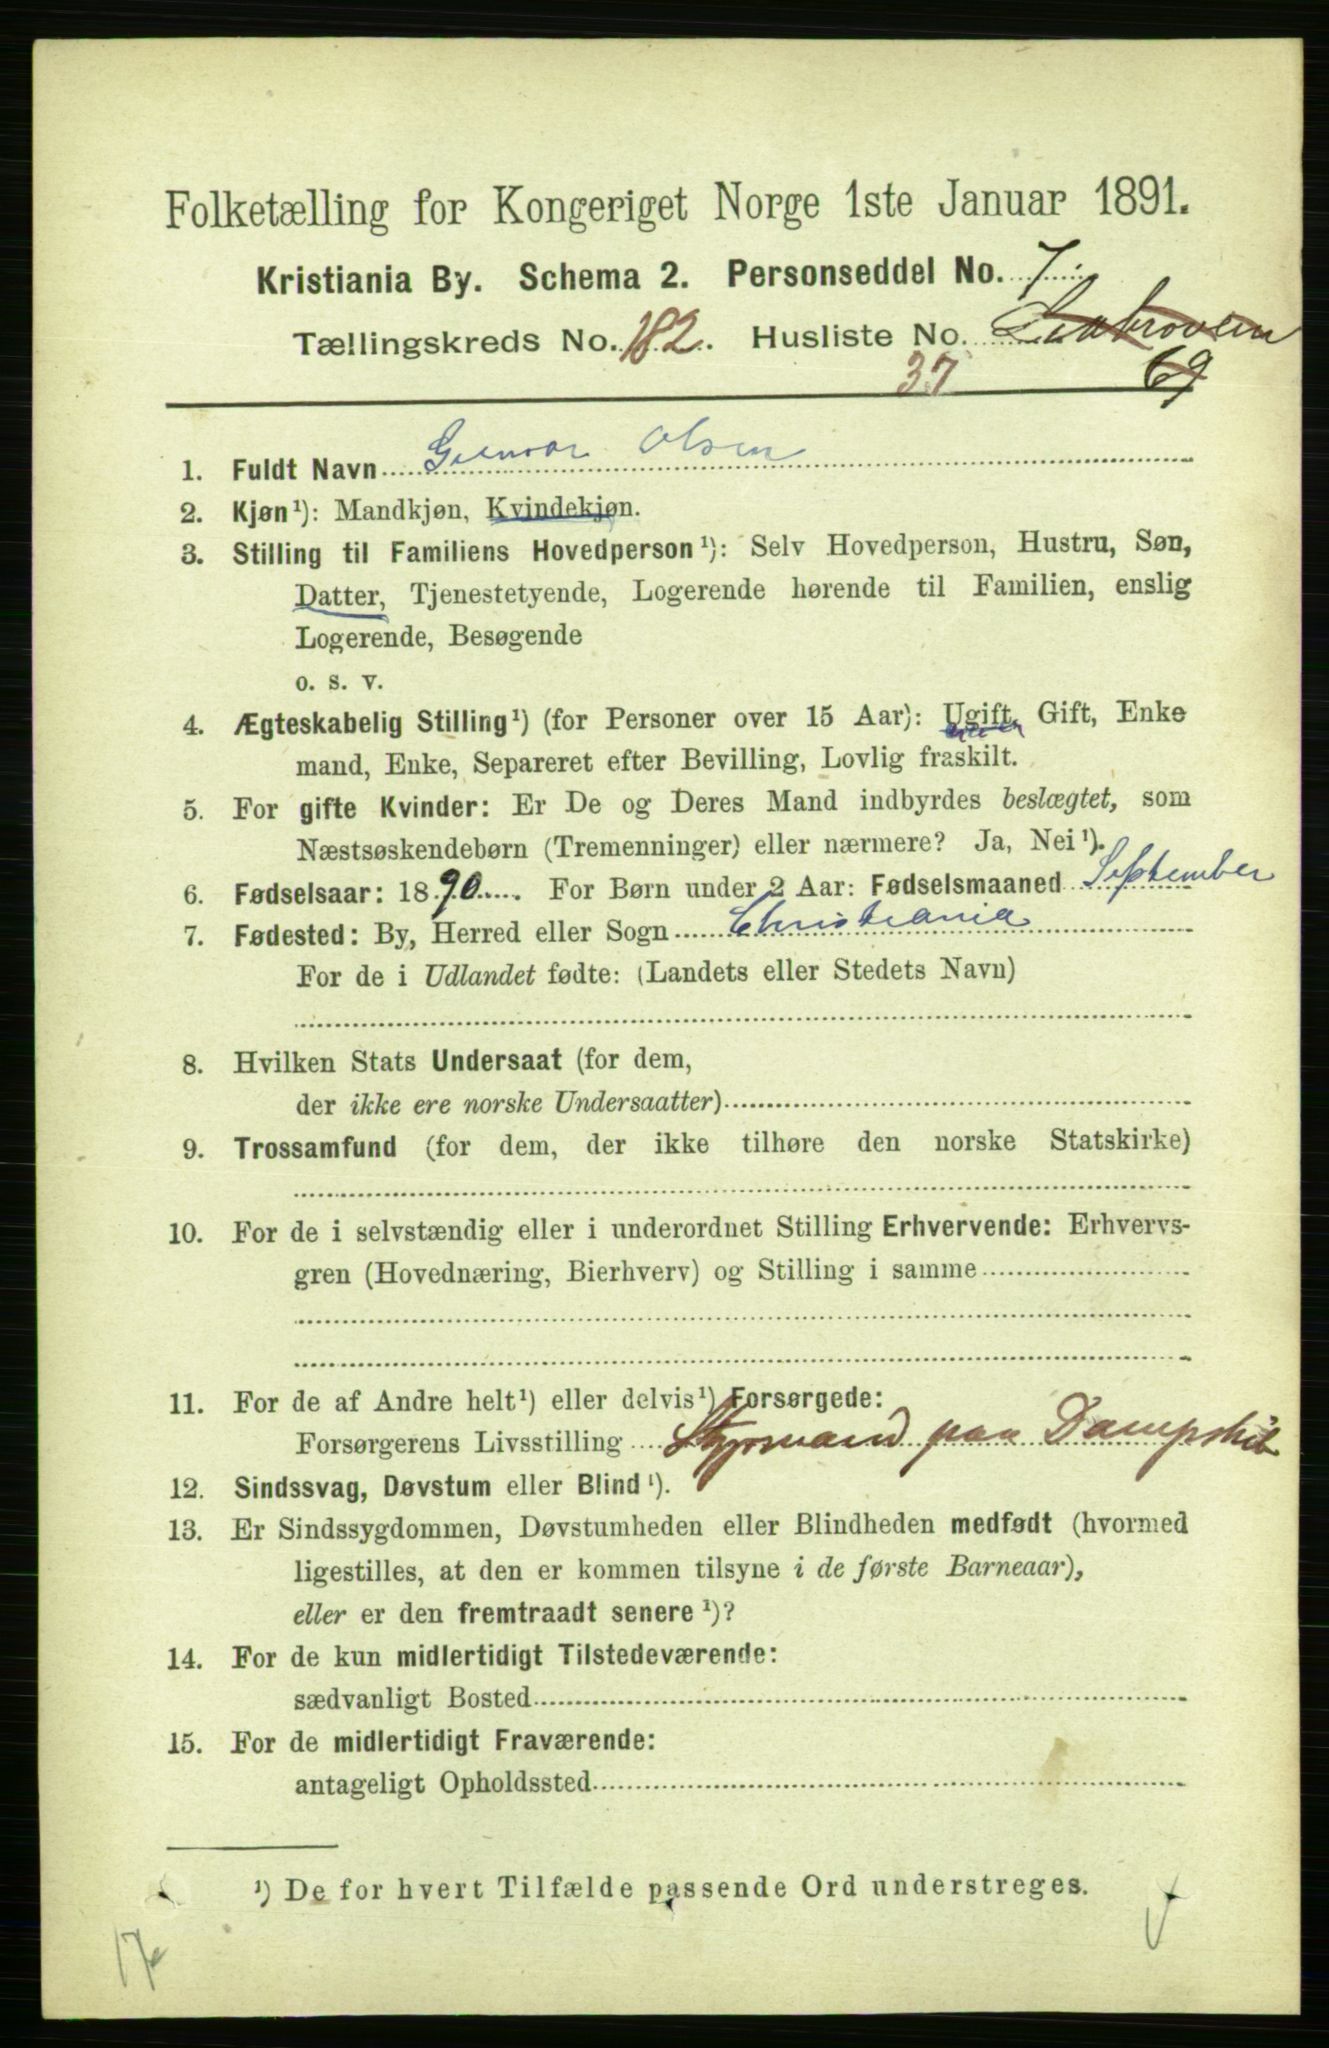 Folketælling for Kongeriget Norge 1ste Januar 1891.
Kristiania By. Schema 2. Personseddel No. 7.
Tællingskreds No. 182. Husliste No.
37 69
1. Fuldt Navn Gunvor Olsen
2. Kjøn¹): Mandkjøn, Kvindekjøn.
3. Stilling til Familiens Hovedperson¹): Selv Hovedperson, Hustru, Søn,
Datter, Tjenestetyende, Logerende hørende til Familien, enslig
Logerende, Besøgende
o. s. v.
4. Ægteskabelig Stilling¹) (for Personer over 15 Aar): Ugift, Gift, Enke
mand, Enke, Separeret efter Bevilling, Lovlig fraskilt.
5. For gifte Kvinder: Er De og Deres Mand indbyrdes beslægtet, som
Næstsøskendebørn (Tremenninger) eller nærmere? Ja, Nei¹).
6. Fødselsaar: 1890. For Børn under 2 Aar: Fødselsmaaned September
7. Fødested: By, Herred eller Sogn Christiania
For de i Udlandet fødte: (Landets eller Stedets Navn)
8. Hvilken Stats Undersaat (for dem,
der ikke ere norske Undersaatter)
9. Trossamfund (for dem, der ikke tilhøre den norske Statskirke)
10. For de i selvstændig eller i underordnet Stilling Erhvervende: Erhvervs-
gren (Hovednæring, Bierhverv) og Stilling i samme
11. For de af Andre helt¹) eller delvis¹) Forsørgede:
Forsørgerens Livsstilling Styrmand paa Dampskib
12. Sindssvag, Døvstum eller Blind¹).
13. Er Sindssygdommen, Døvstumheden eller Blindheden medfødt (hvormed
ligestilles, at den er kommen tilsyne i de første Barneaar),
eller er den fremtraadt senere¹)?
14. For de kun midlertidigt Tilstedeværende:
sædvanligt Bosted
15. For de midlertidigt Fraværende:
antageligt Opholdssted
¹) De for hvert Tilfælde passende Ord understreges.